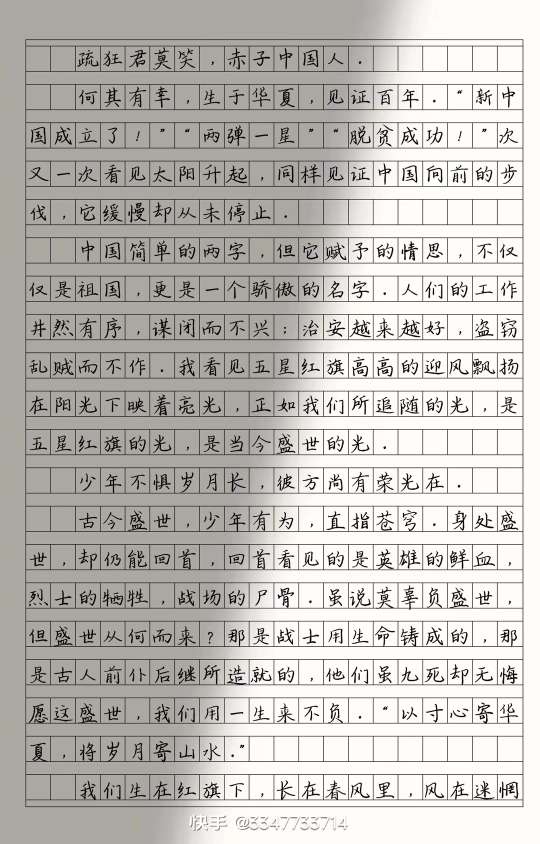 疏狂君莫笑，赤子中国人．
何其有幸，生于华夏，见证百年．“新中
国成立了！”“两弹一星”“脱贫成功！”次
又一次看见太阳升起，同样见证中国向前的步
伐，它缓慢却从未停止．
中国简单的两字，但它赋予的情思，不仅
仅是祖国，更是一个骄傲的名字．人们的工作
井然有序，谋闭而不兴；治安越来越好，盗窃
乱贼而不作．我看见五星红旗高高的迎风飘扬
在阳光下映着亮光，正如我们所追随的光，是
五星红旗的光，是当今盛世的光．
少年不惧岁月长，彼方尚有荣光在．
古今盛世，少年有为，直指苍穹．身处盛
世，却仍能回首，回首看见的是英雄的鲜血，
烈士的牺牲，战场的尸骨．虽说莫辜负盛世，
但盛世从何而来？那是战士用生命铸成的，那
是古人前仆后继所造就的，他们虽九死却无悔
愿这盛世，我们用一生来不负．“以寸心寄华
夏，将岁月寄山水．”
我们生在红旗下，长在春风里，风在迷惘
快手 @3347733714